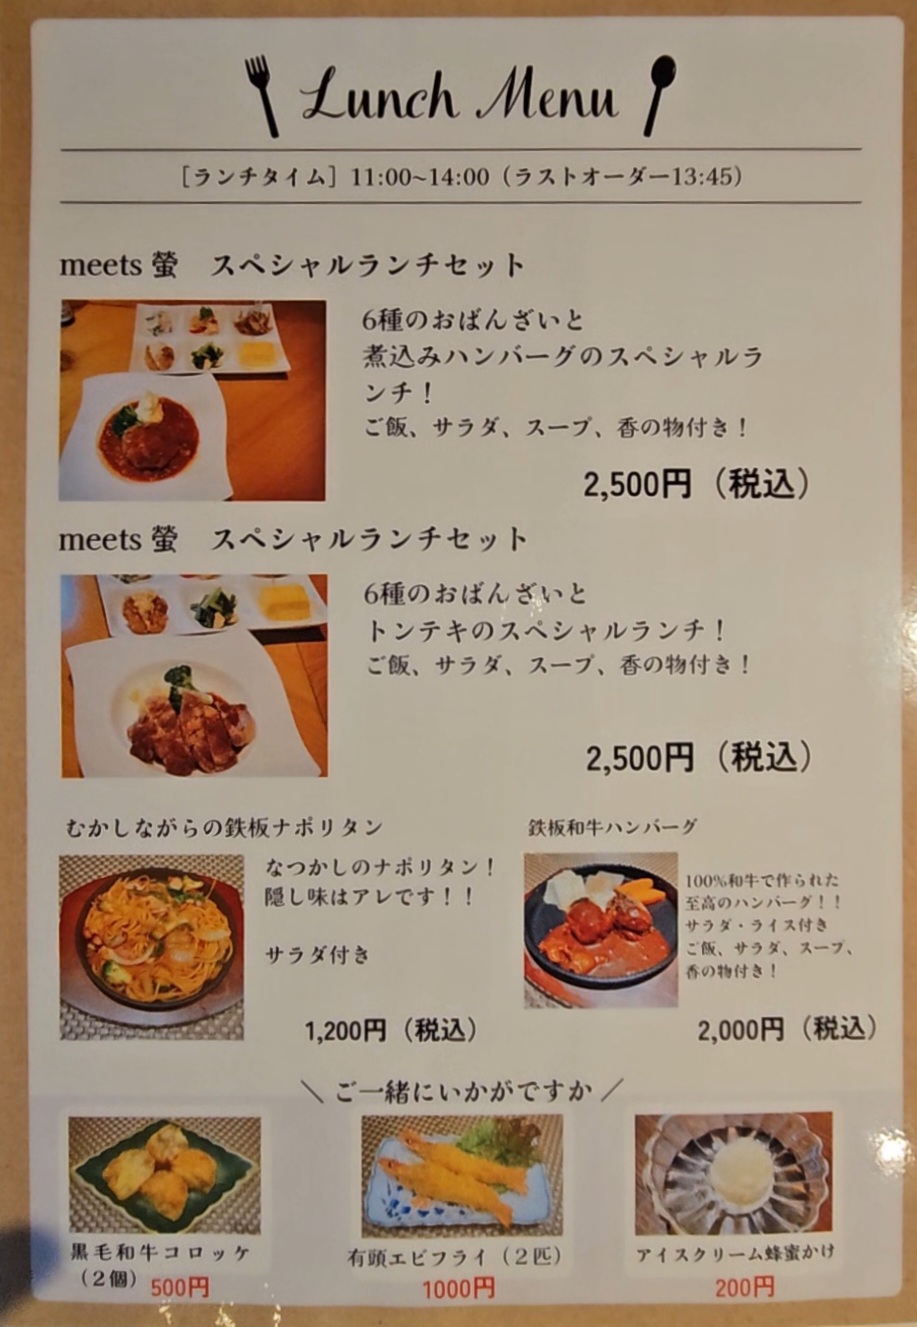 Lunch Menu
［ランチタイム］11:00~14:00（ラストオーダー13:45）
meets 螢　スペシャルランチセット
6種のおばんざいと
煮込みハンバーグのスペシャルラ
ンチ！
ご飯、サラダ、スープ、香の物付き！
2,500円（税込）
meets 螢　スペシャルランチセット
6種のおばんざいと
トンテキのスペシャルランチ！
ご飯、サラダ、スープ、香の物付き！
2,500円（税込）
むかしながらの鉄板ナポリタン
なつかしのナポリタン！
隠し味はアレです！！
サラダ付き
1,200円（税込）
鉄板和牛ハンバーグ
100%和牛で作られた
至高のハンバーグ！！
サラダ・ライス付き
ご飯、サラダ、スープ、
香の物付き！
2,000円（税込）
＼ ご一緒にいかがですか ／
黒毛和牛コロッケ
（２個）500円
有頭エビフライ（２匹）
1000円
アイスクリーム蜂蜜かけ
200円